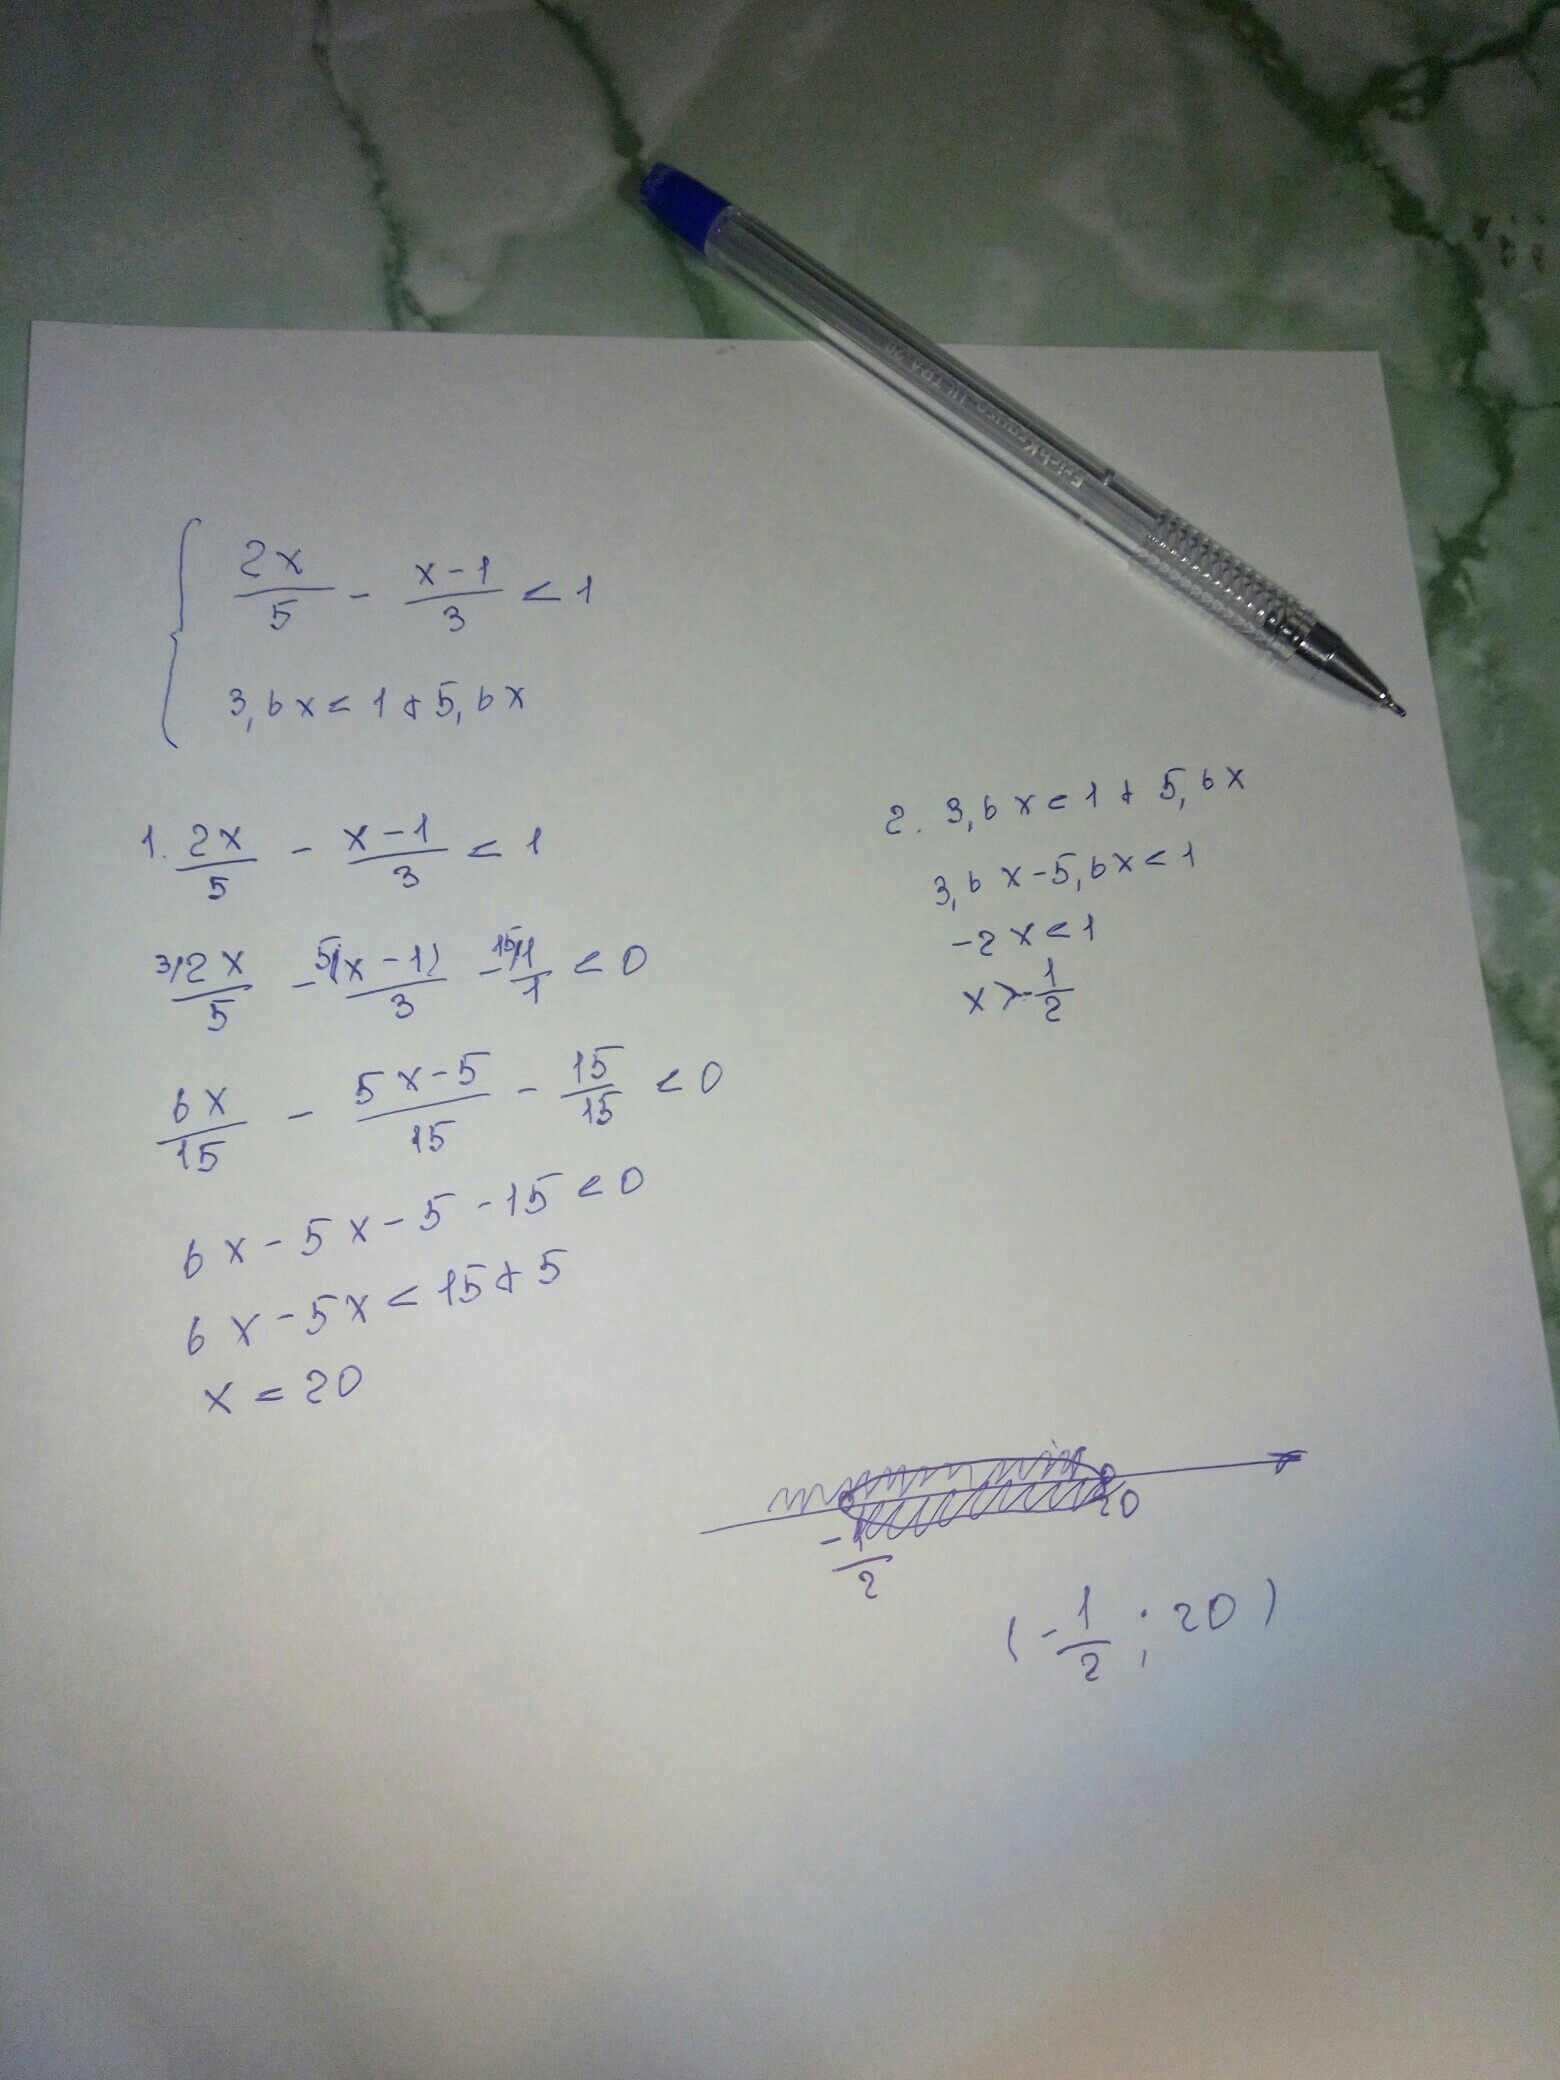 ErichKrause ULTRA-20
2x/5 - x-1/3 < 1
3,6x < 1 + 5,6x
1. 2x/5 - x-1/3 < 1
3/2x/5 - 5/(x-1)/3 - 15/1/1 < 0
6x/15 - 5x-5/15 - 15/15 < 0
6x - 5x - 5 - 15 < 0
6x - 5x < 15 + 5
x < 20
2. 3,6x < 1 + 5,6x
3,6x - 5,6x < 1
-2x < 1
x > -1/2
-1/2 20
(-1/2 ; 20)